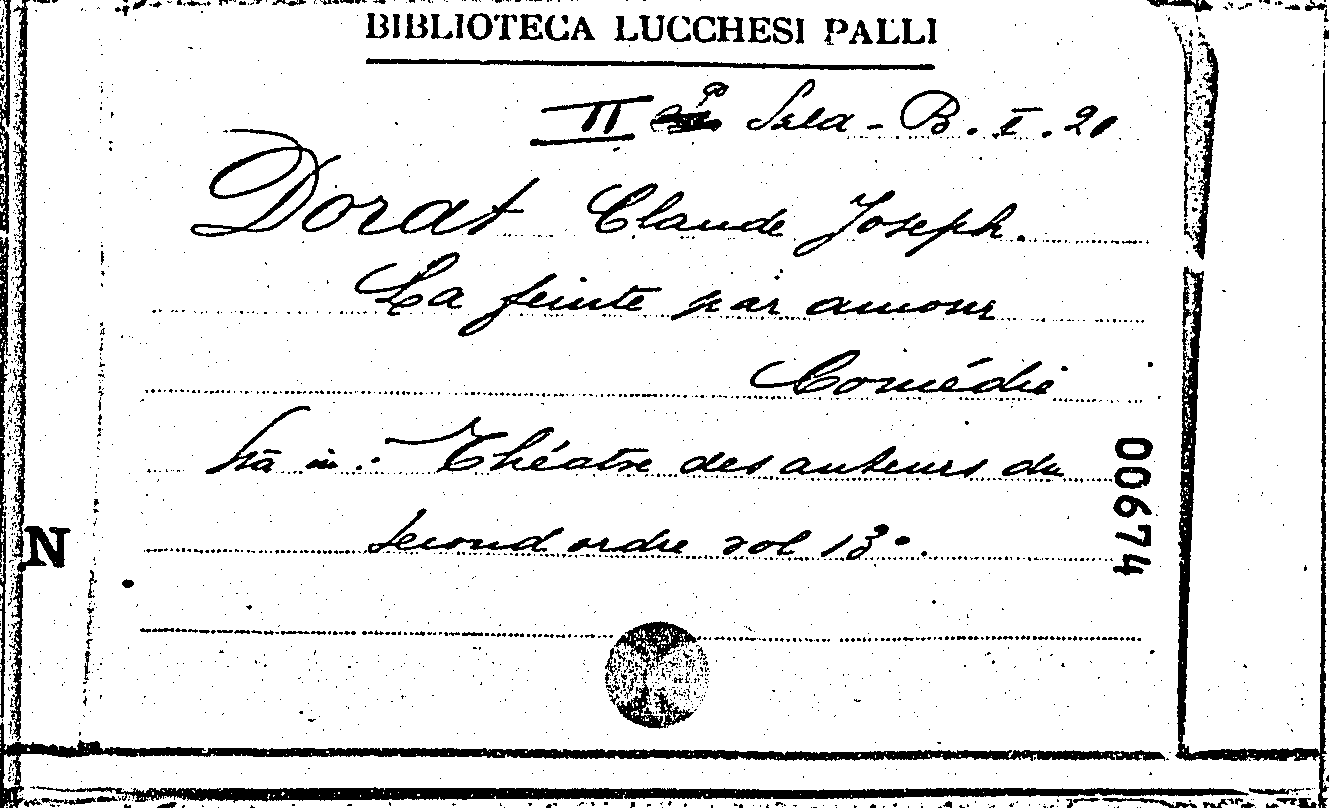 BIBLIOTECA LUCCHESI PALLI
II Sala - B. I. 20
Dorat Claude Joseph.
La feinte par amour
Comédie
Sta in: Théatre des auteurs du
second ordre vol 13º.
00674
N